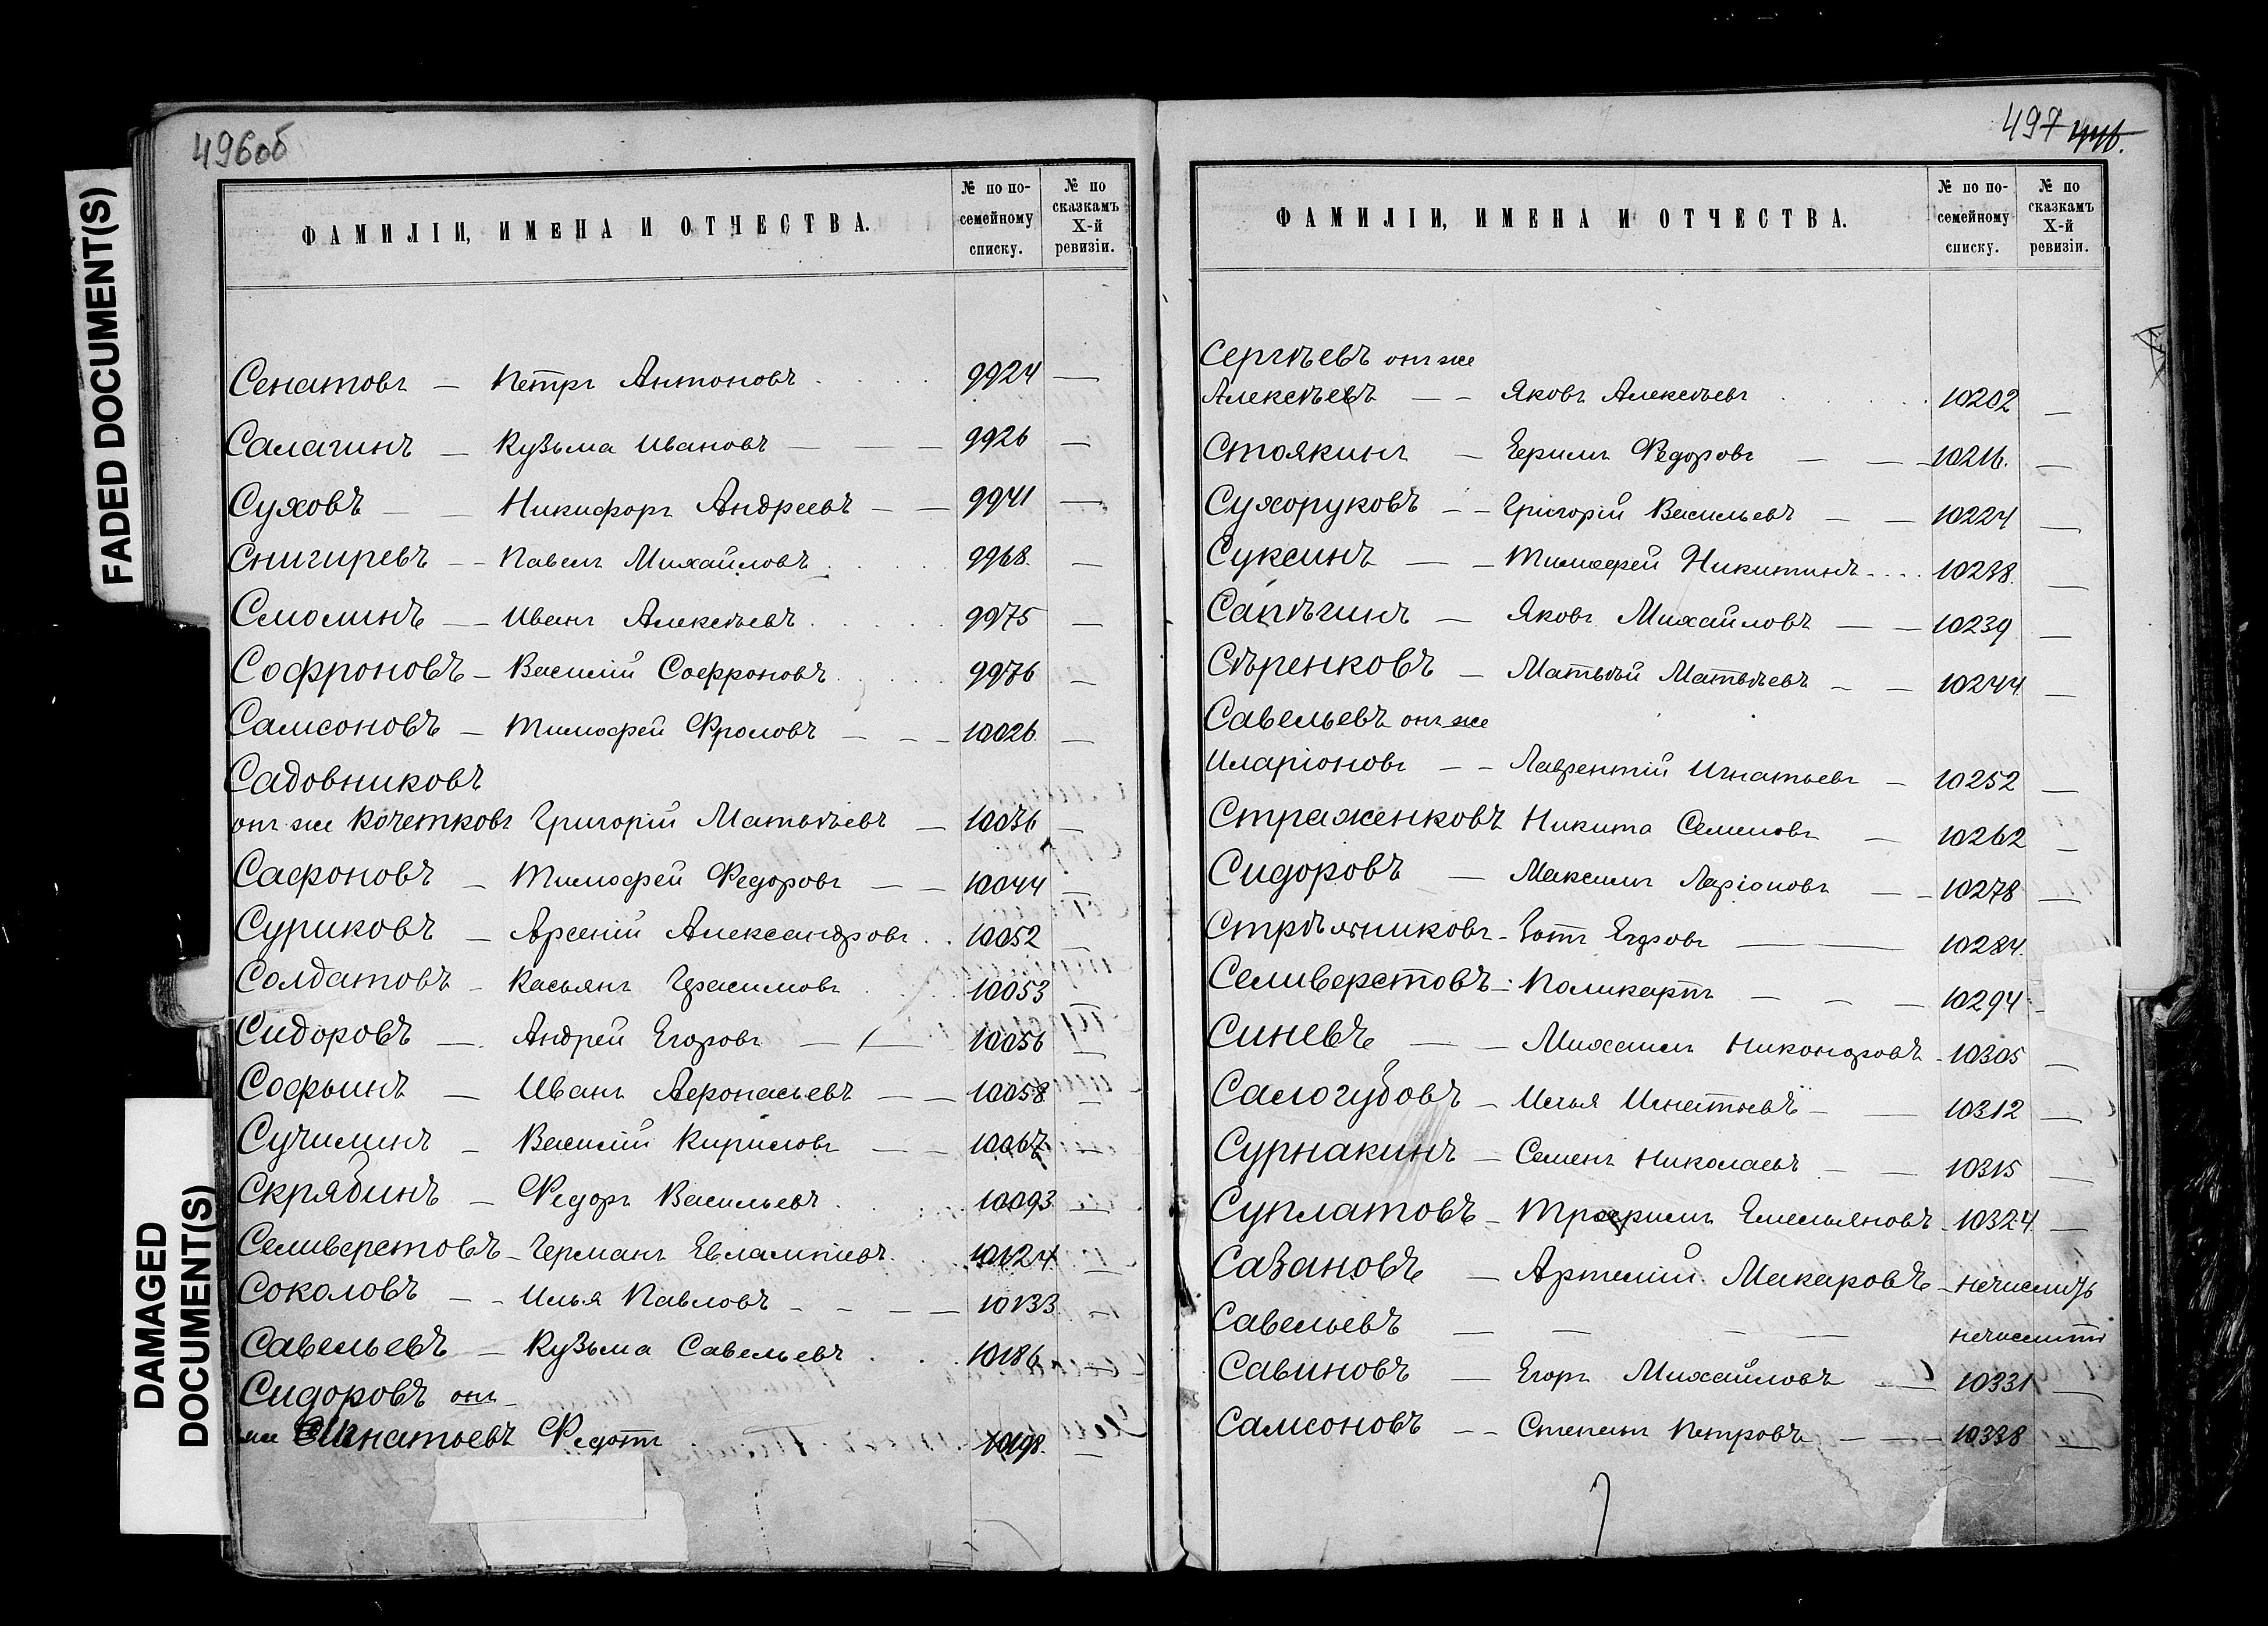 FADED DOCUMENT(S)
DAMAGED
DOCUMENT(S)
496об
ФАМИЛІИ, ИМЕНА И ОТЧЕСТВА.
№ по по-
семейному
списку.
№ по
сказкамъ
X-й
ревизіи.
Сенатовъ — Петръ Антоновъ . . . . 9924 —
Салагинъ — Кузьма Ивановъ — — — 9926 —
Суховъ — — Никифоръ Андреевъ — — 9941 —
Снигиревъ — — Павелъ Михайловъ . . . 9968. —
Смолинъ — — Иванъ Алексѣевъ . . . . 9975 —
Софроновъ — Василій Софроновъ . . . 9976 —
Самсоновъ — Тимофей Фроловъ — — — 10026 —
Садовниковъ
онъ же Кочетковъ Григорій Матвѣевъ — 10036 —
Сафоновъ — Тимофей Федоровъ — — 10044 —
Суриковъ — Арсеній Александровъ . . 10052 —
Солдатовъ — Касьянъ Герасимовъ . . . 10053 —
Сидоровъ — Андрей Егоровъ — — 10056 —
Софьинъ — Иванъ Афонасьевъ — — 10058 —
Сучилинъ — Василій Кириловъ — — 10067 —
Скрябинъ — Федоръ Васильевъ . . . 10093 —
Селиверстовъ — Германъ Евлампіевъ . . 10124 —
Соколовъ — — Илья Павловъ — — — — 10133 —
Савельевъ — Кузьма Савельевъ . . . 10186 —
Сидоровъ онъ —
же Игнатьевъ Федотъ 10198. —
497
ФАМИЛІИ, ИМЕНА И ОТЧЕСТВА.
№ по по-
семейному
списку.
№ по
сказкамъ
X-й
ревизіи.
Сергѣевъ онъ же
Алексѣевъ — — Яковъ Алексѣевъ . . . . 10202 —
Стоякинъ — Ефимъ Федоровъ — — 10216. —
Сухоруковъ — — Григорій Васильевъ — — 10224 —
Суксинъ — — Тимофей Никитинъ . . . 10238. —
Сапѣгинъ — Яковъ Михайловъ — — 10239 —
Сѣренковъ — Матвѣй Матвѣевъ — — 10244 —
Савельевъ онъ же
Иларіоновъ — — Лаврентій Игнатьевъ — 10252 —
Страженковъ Никита Семеновъ — 10262 —
Сидоровъ — Максимъ Ларіоновъ — — 10278 —
Стрѣлниковъ — Зотъ Егоровъ — — 10284. —
Селиверстовъ — Поликарпъ — — — 10294 —
Синевъ — — Михаилъ Никоноровъ — 10305 —
Салогубовъ — Илья Игнатьевъ — — 10312 —
Сурнакинъ — Семенъ Николаевъ — — 10315 —
Суплатовъ — Трофимъ Емельяновъ — 10324 —
Сазановъ — Артемій Макаровъ — нечислитъ
Савельевъ — — — — нечислитъ
Савиновъ — Егоръ Михайловъ — — 10331 —
Самсоновъ — — Степанъ Петровъ — — 10338 —